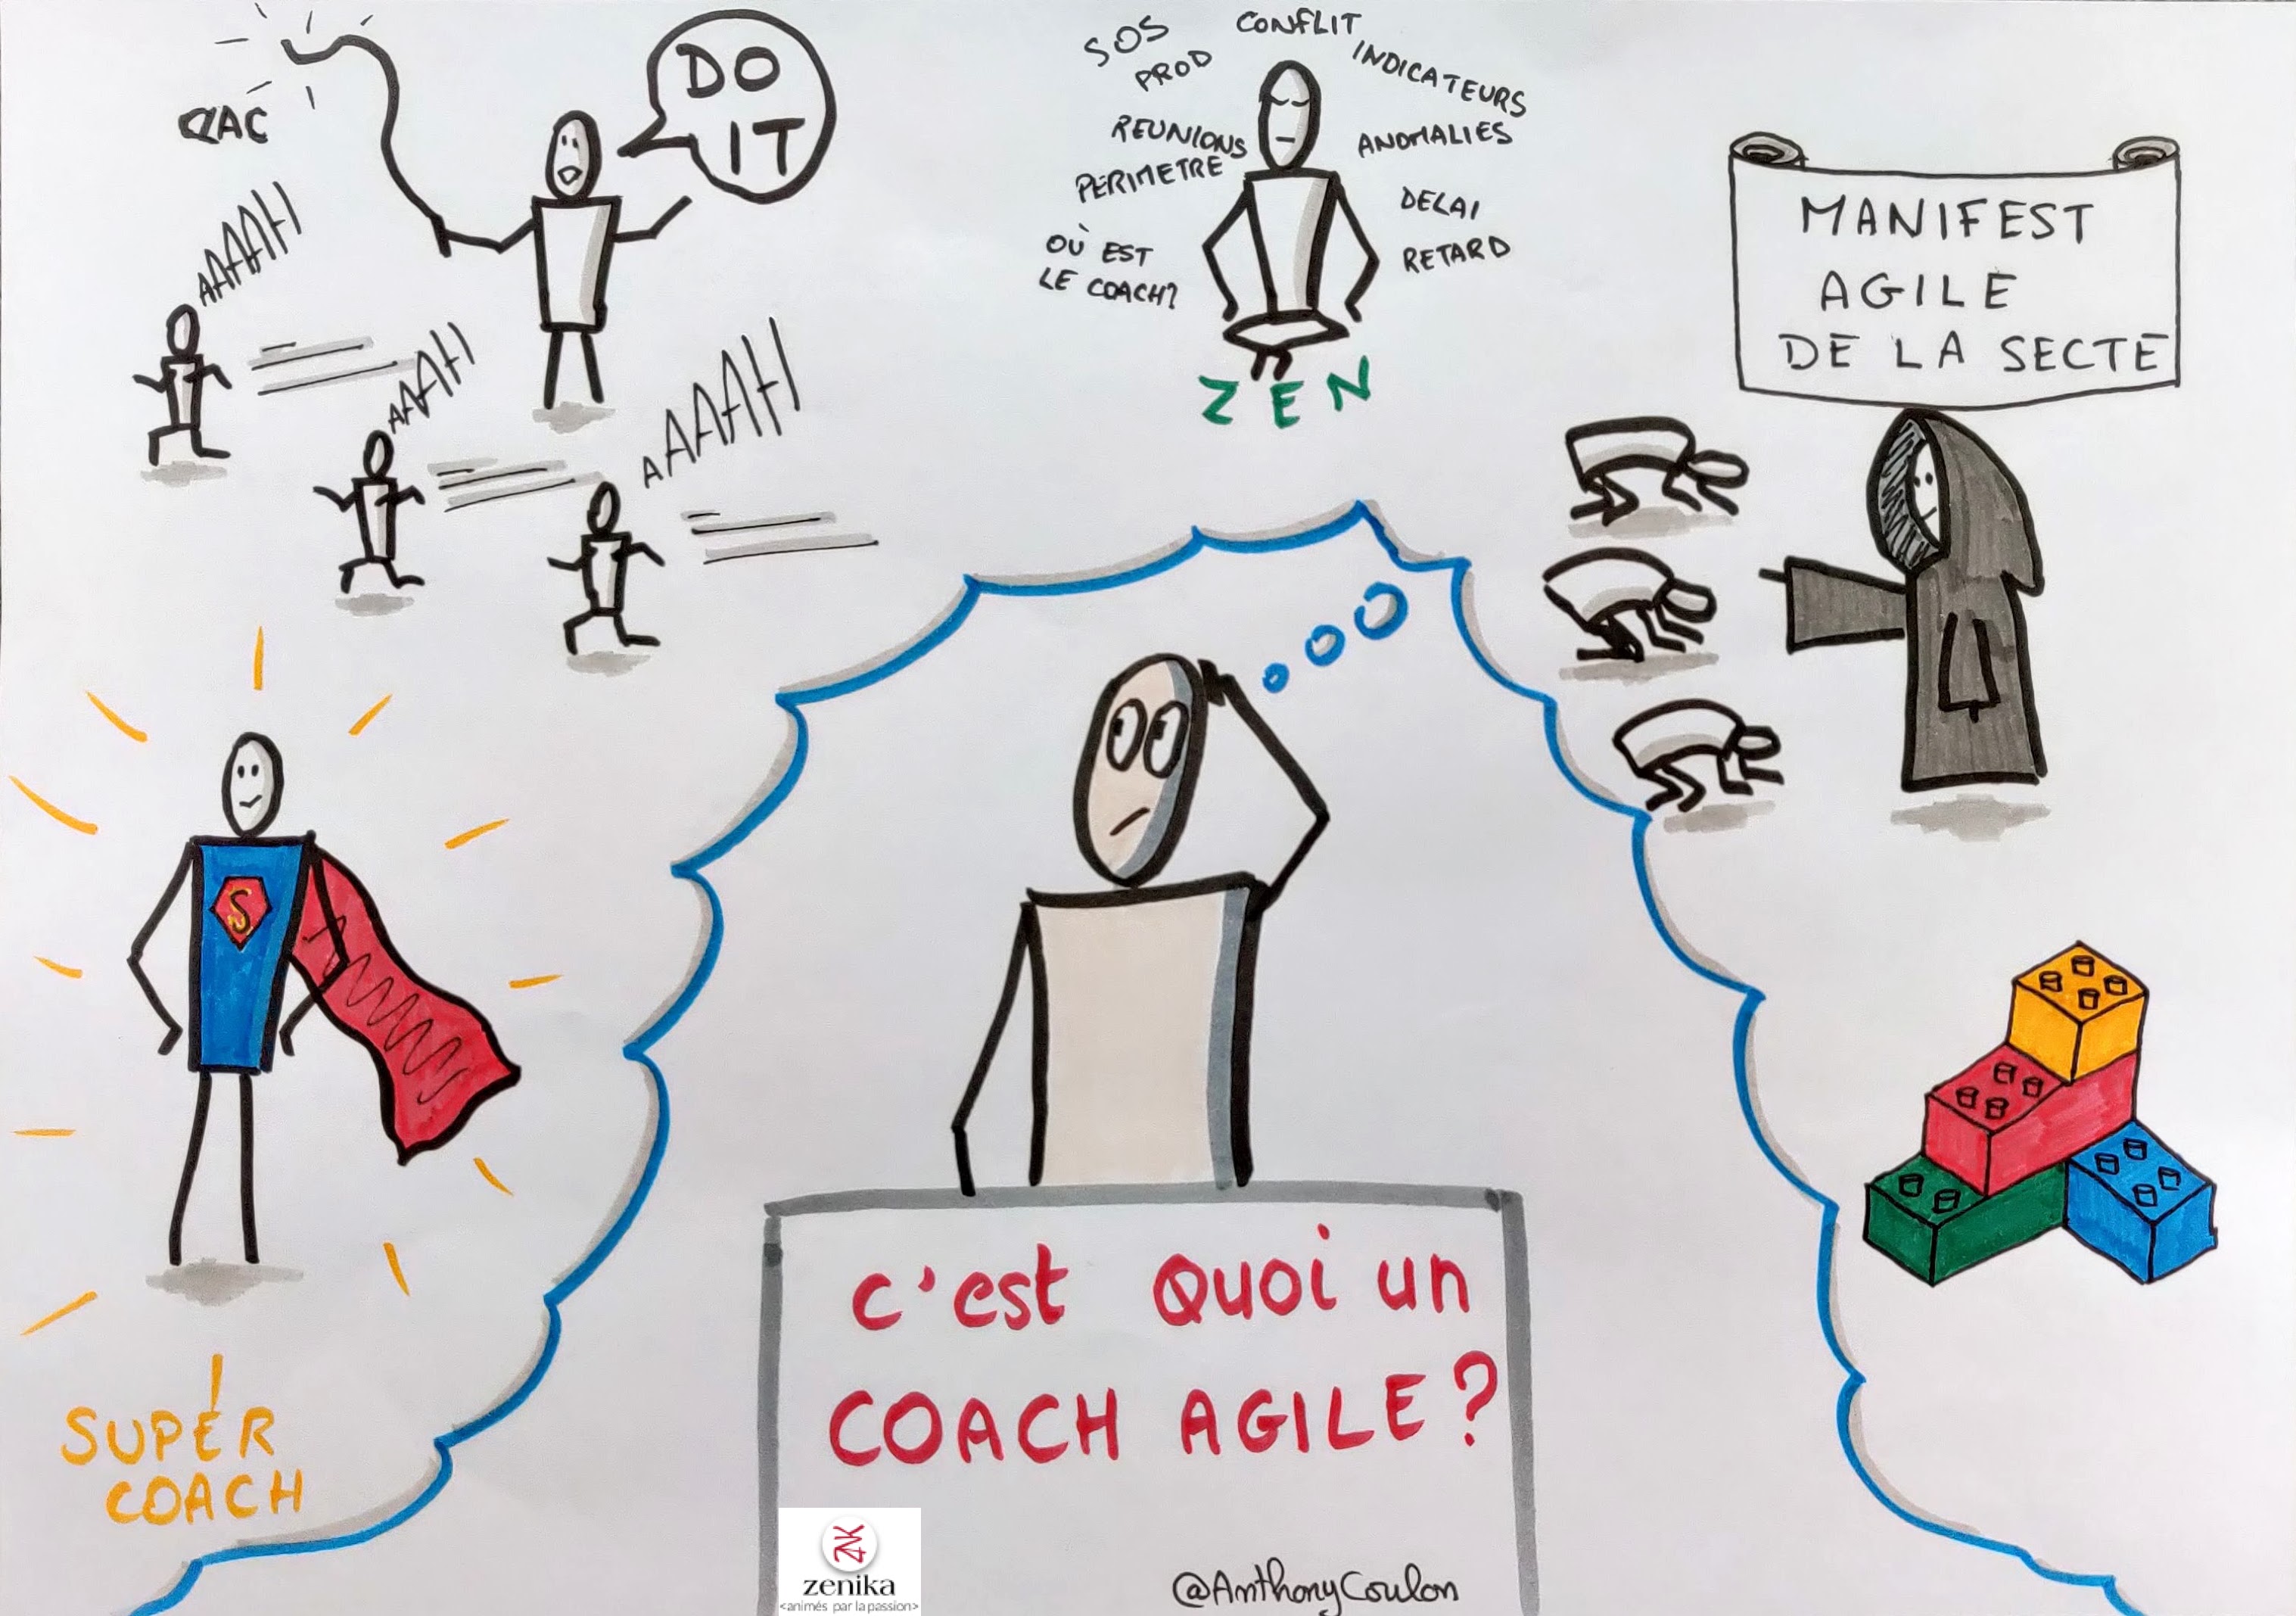 CLAC
DO
IT
AAAAAH
AAAAH
AAAAH
SOS
PROD
CONFLIT
INDICATEURS
REUNIONS
ANOMALIES
PERIMETRE
DELAI
OÙ EST
LE COACH?
RETARD
ZEN
MANIFEST
AGILE
DE LA SECTE
S
SUPER
COACH
c'est Quoi un
COACH AGILE?
zenika
<animés par la passion>
@AnthonyCoulon